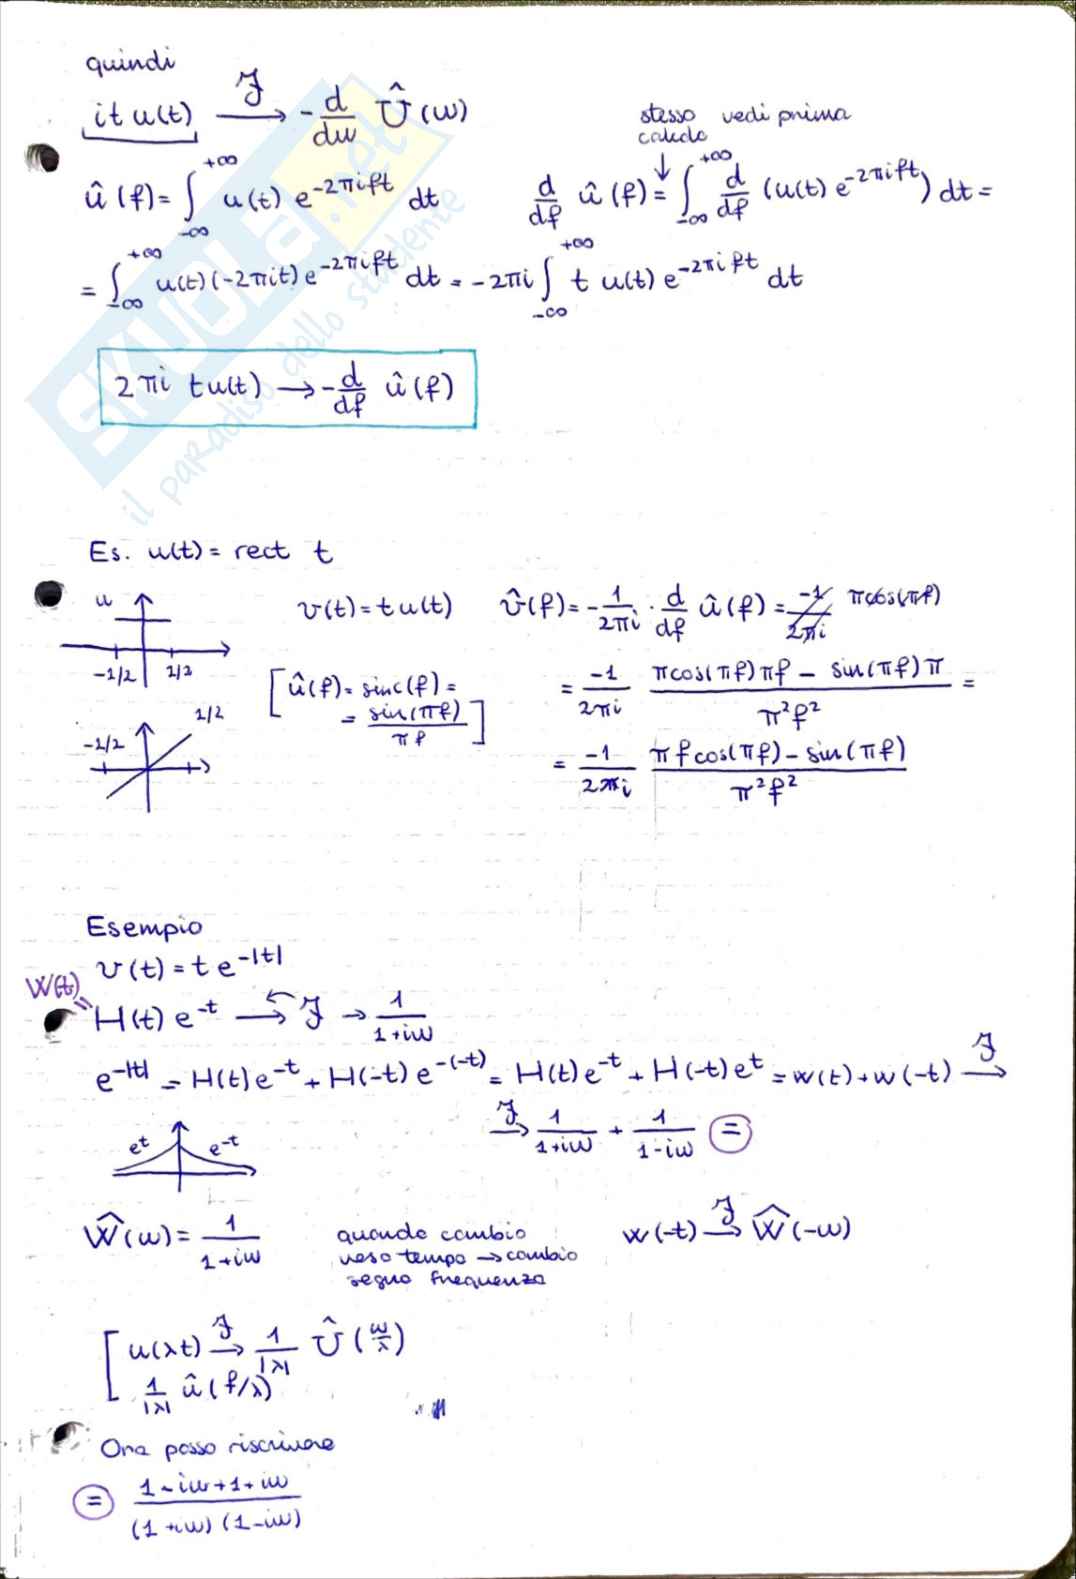 quindi
it u(t) ℱ→ -d/dω Û(ω)
stesso calcolo vedi prima
û(f) = ∫_{-∞}^{+∞} u(t) e^{-2πift} dt
d/df û(f) = ∫_{-∞}^{+∞} d/df (u(t) e^{-2πift}) dt =
= ∫_{-∞}^{+∞} u(t)(-2πit) e^{-2πift} dt = -2πi ∫_{-∞}^{+∞} t u(t) e^{-2πift} dt
2πi t u(t) → -d/df û(f)
SKUOLA.net
il paradiso dello studente
Es. u(t) = rect t
u
-1/2 1/2
v(t) = t u(t)
v̂(f) = -1/2πi · d/df û(f) = -1/2πi πcos(πf)
[û(f) = sinc(f) =
= sin(πf)/πf]
= -1/2πi (πcos(πf)πf - sin(πf)π)/π²f² =
-1/2 1/2
= -1/2πi (πf cos(πf) - sin(πf))/π²f²
Esempio
v(t) = t e^{-|t|}
W(t)
=
H(t) e^{-t} → ℱ → 1/(1+iω)
e^{-|t|} = H(t)e^{-t} + H(-t) e^{-(-t)} = H(t)e^{-t} + H(-t)e^{t} = w(t) + w(-t) ℱ→
ℱ→ 1/(1+iω) + 1/(1-iω) =
e^t e^{-t}
Ŵ(ω) = 1/(1+iω)
quando cambio
verso tempo → cambio
segno frequenza
w(-t) ℱ→ Ŵ(-ω)
[u(λt) ℱ→ 1/|λ| Û(ω/λ)
1/|λ| û(f/λ)
Ora posso riscrivere
= (1-iω+1+iω)/((1+iω)(1-iω))